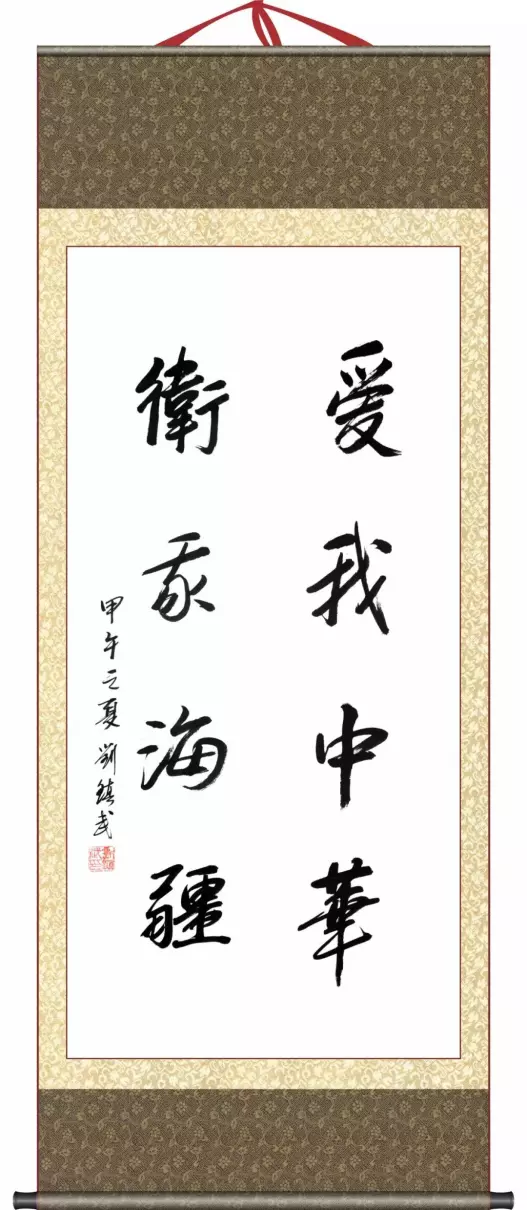 愛我中華
衛我海疆
甲午之夏 劉鎮武